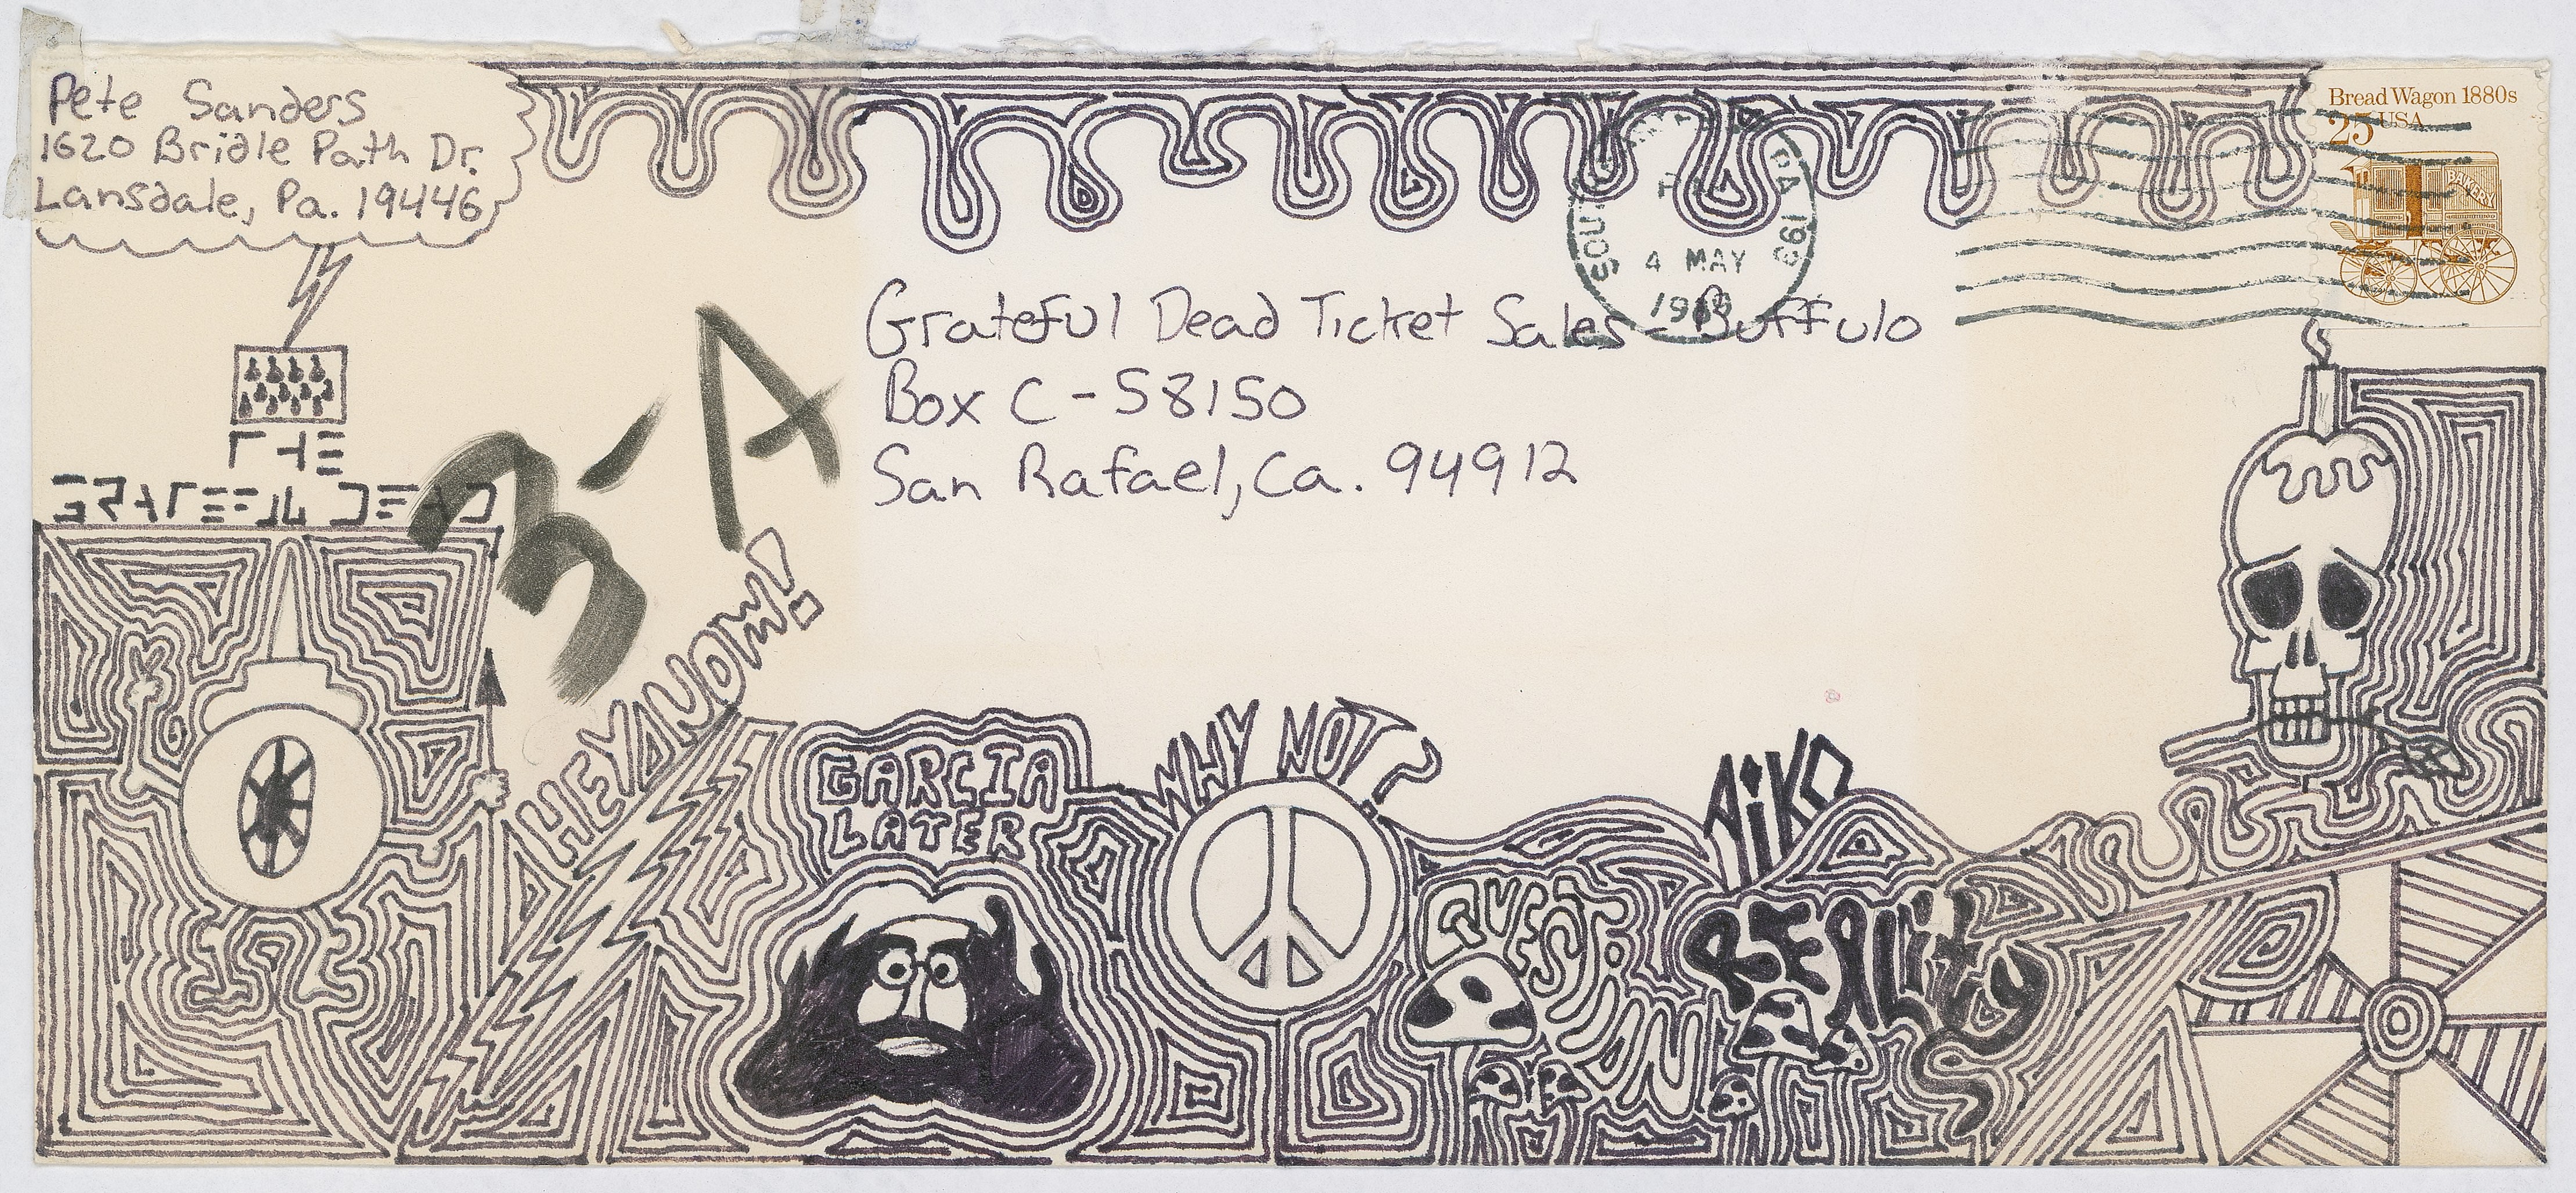 Pete Sanders
1620 Bridle Path Dr.
Lansdale, Pa. 19446
Bread Wagon 1880s
25 USA
BAKERY
PA 193
4 MAY
Grateful Dead Ticket Sales - Buffulo
Box C-58150
San Rafael, Ca. 94912
3-A
THE
GRATEFUL DEAD
HEY NOW!
GARCIA
LATER
WHY NOT?
AiKO
QUESTION
REALity